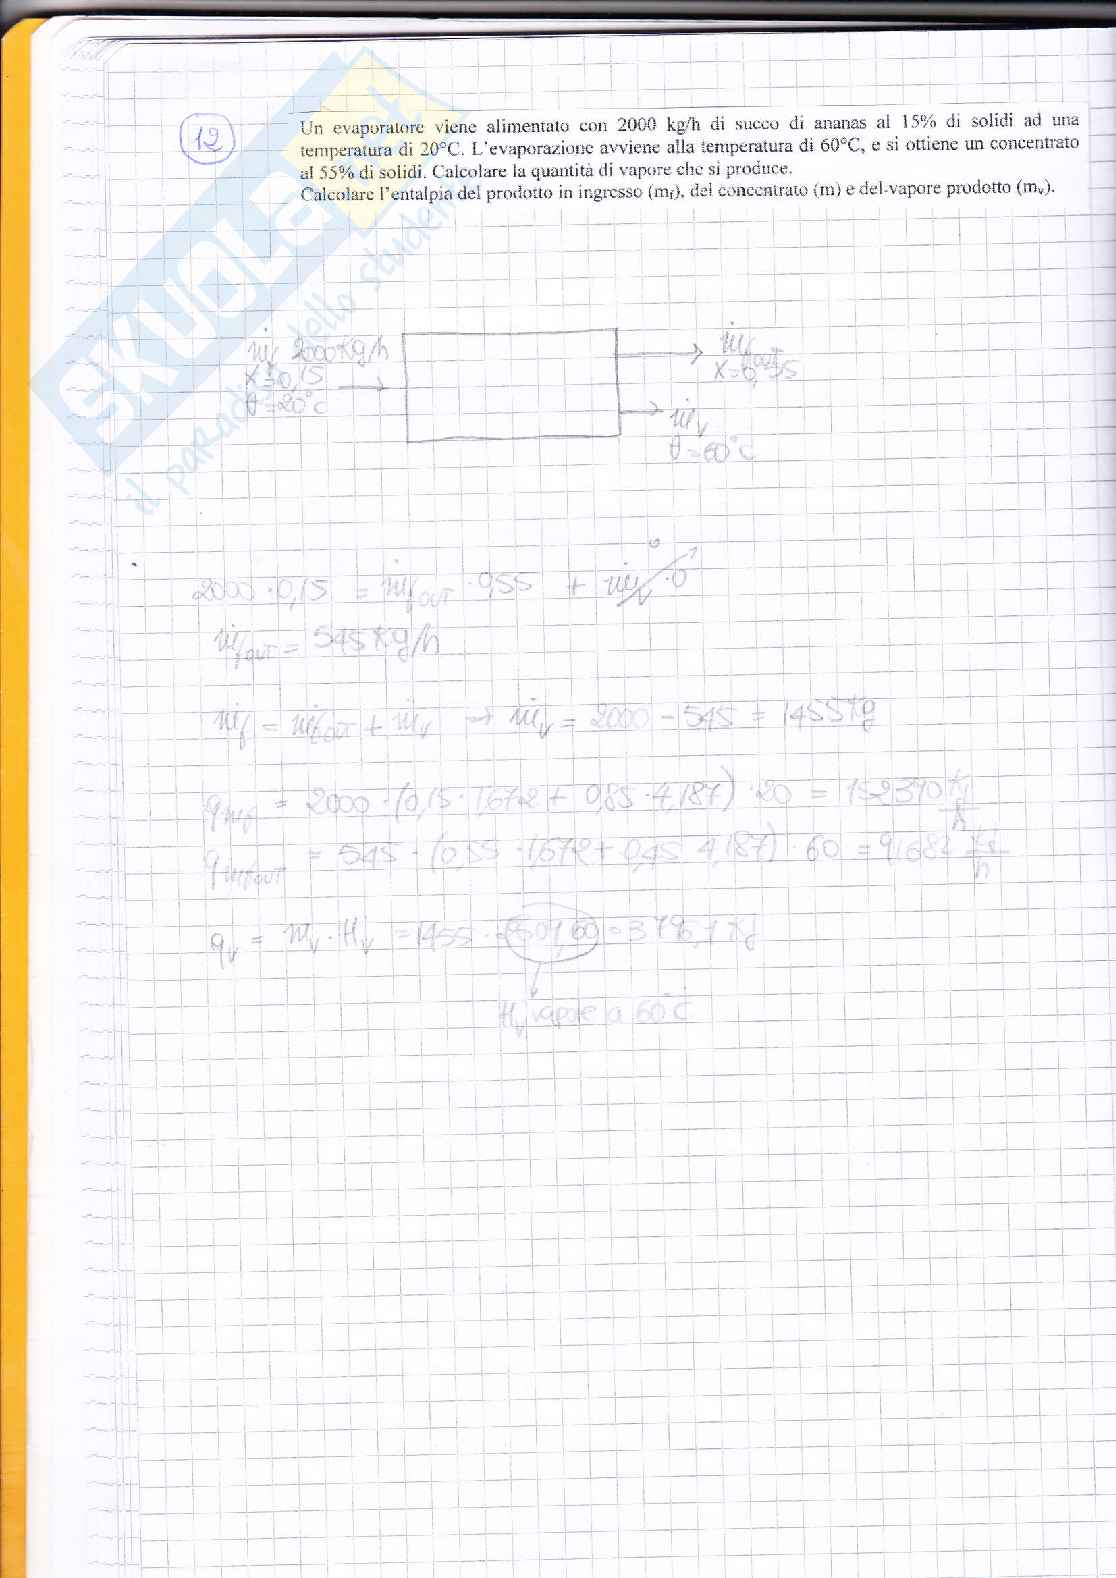 12
Un evaporatore viene alimentato con 2000 kg/h di succo di ananas al 15% di solidi ad una
temperatura di 20°C. L'evaporazione avviene alla temperatura di 60°C, e si ottiene un concentrato
al 55% di solidi. Calcolare la quantità di vapore che si produce.
Calcolare l'entalpia del prodotto in ingresso (mf), del concentrato (m) e del vapore prodotto (mv).
ṁf 2000 Kg/h
X = 0,15
θ = 20°C
ṁfout
X = 0,55
ṁv
θ = 60°C
2000 · 0,15 = ṁfOUT · 0,55 + ṁv · 0
0
ṁfOUT = 545 Kg/h
ṁf = ṁfOUT + ṁv → ṁv = 2000 - 545 = 1455 Kg
qmf = 2000 · (0,15 · 1,672 + 0,85 · 4,187) · 20 = 152390 Kj/h
qmfout = 545 · (0,55 · 1,672 + 0,45 4,187) · 60 = 91682 Kj/h
qv = mv · Hv = 1455 ·
Hv vapore a 60°C
SKUOLA.net
il paradiso dello studente